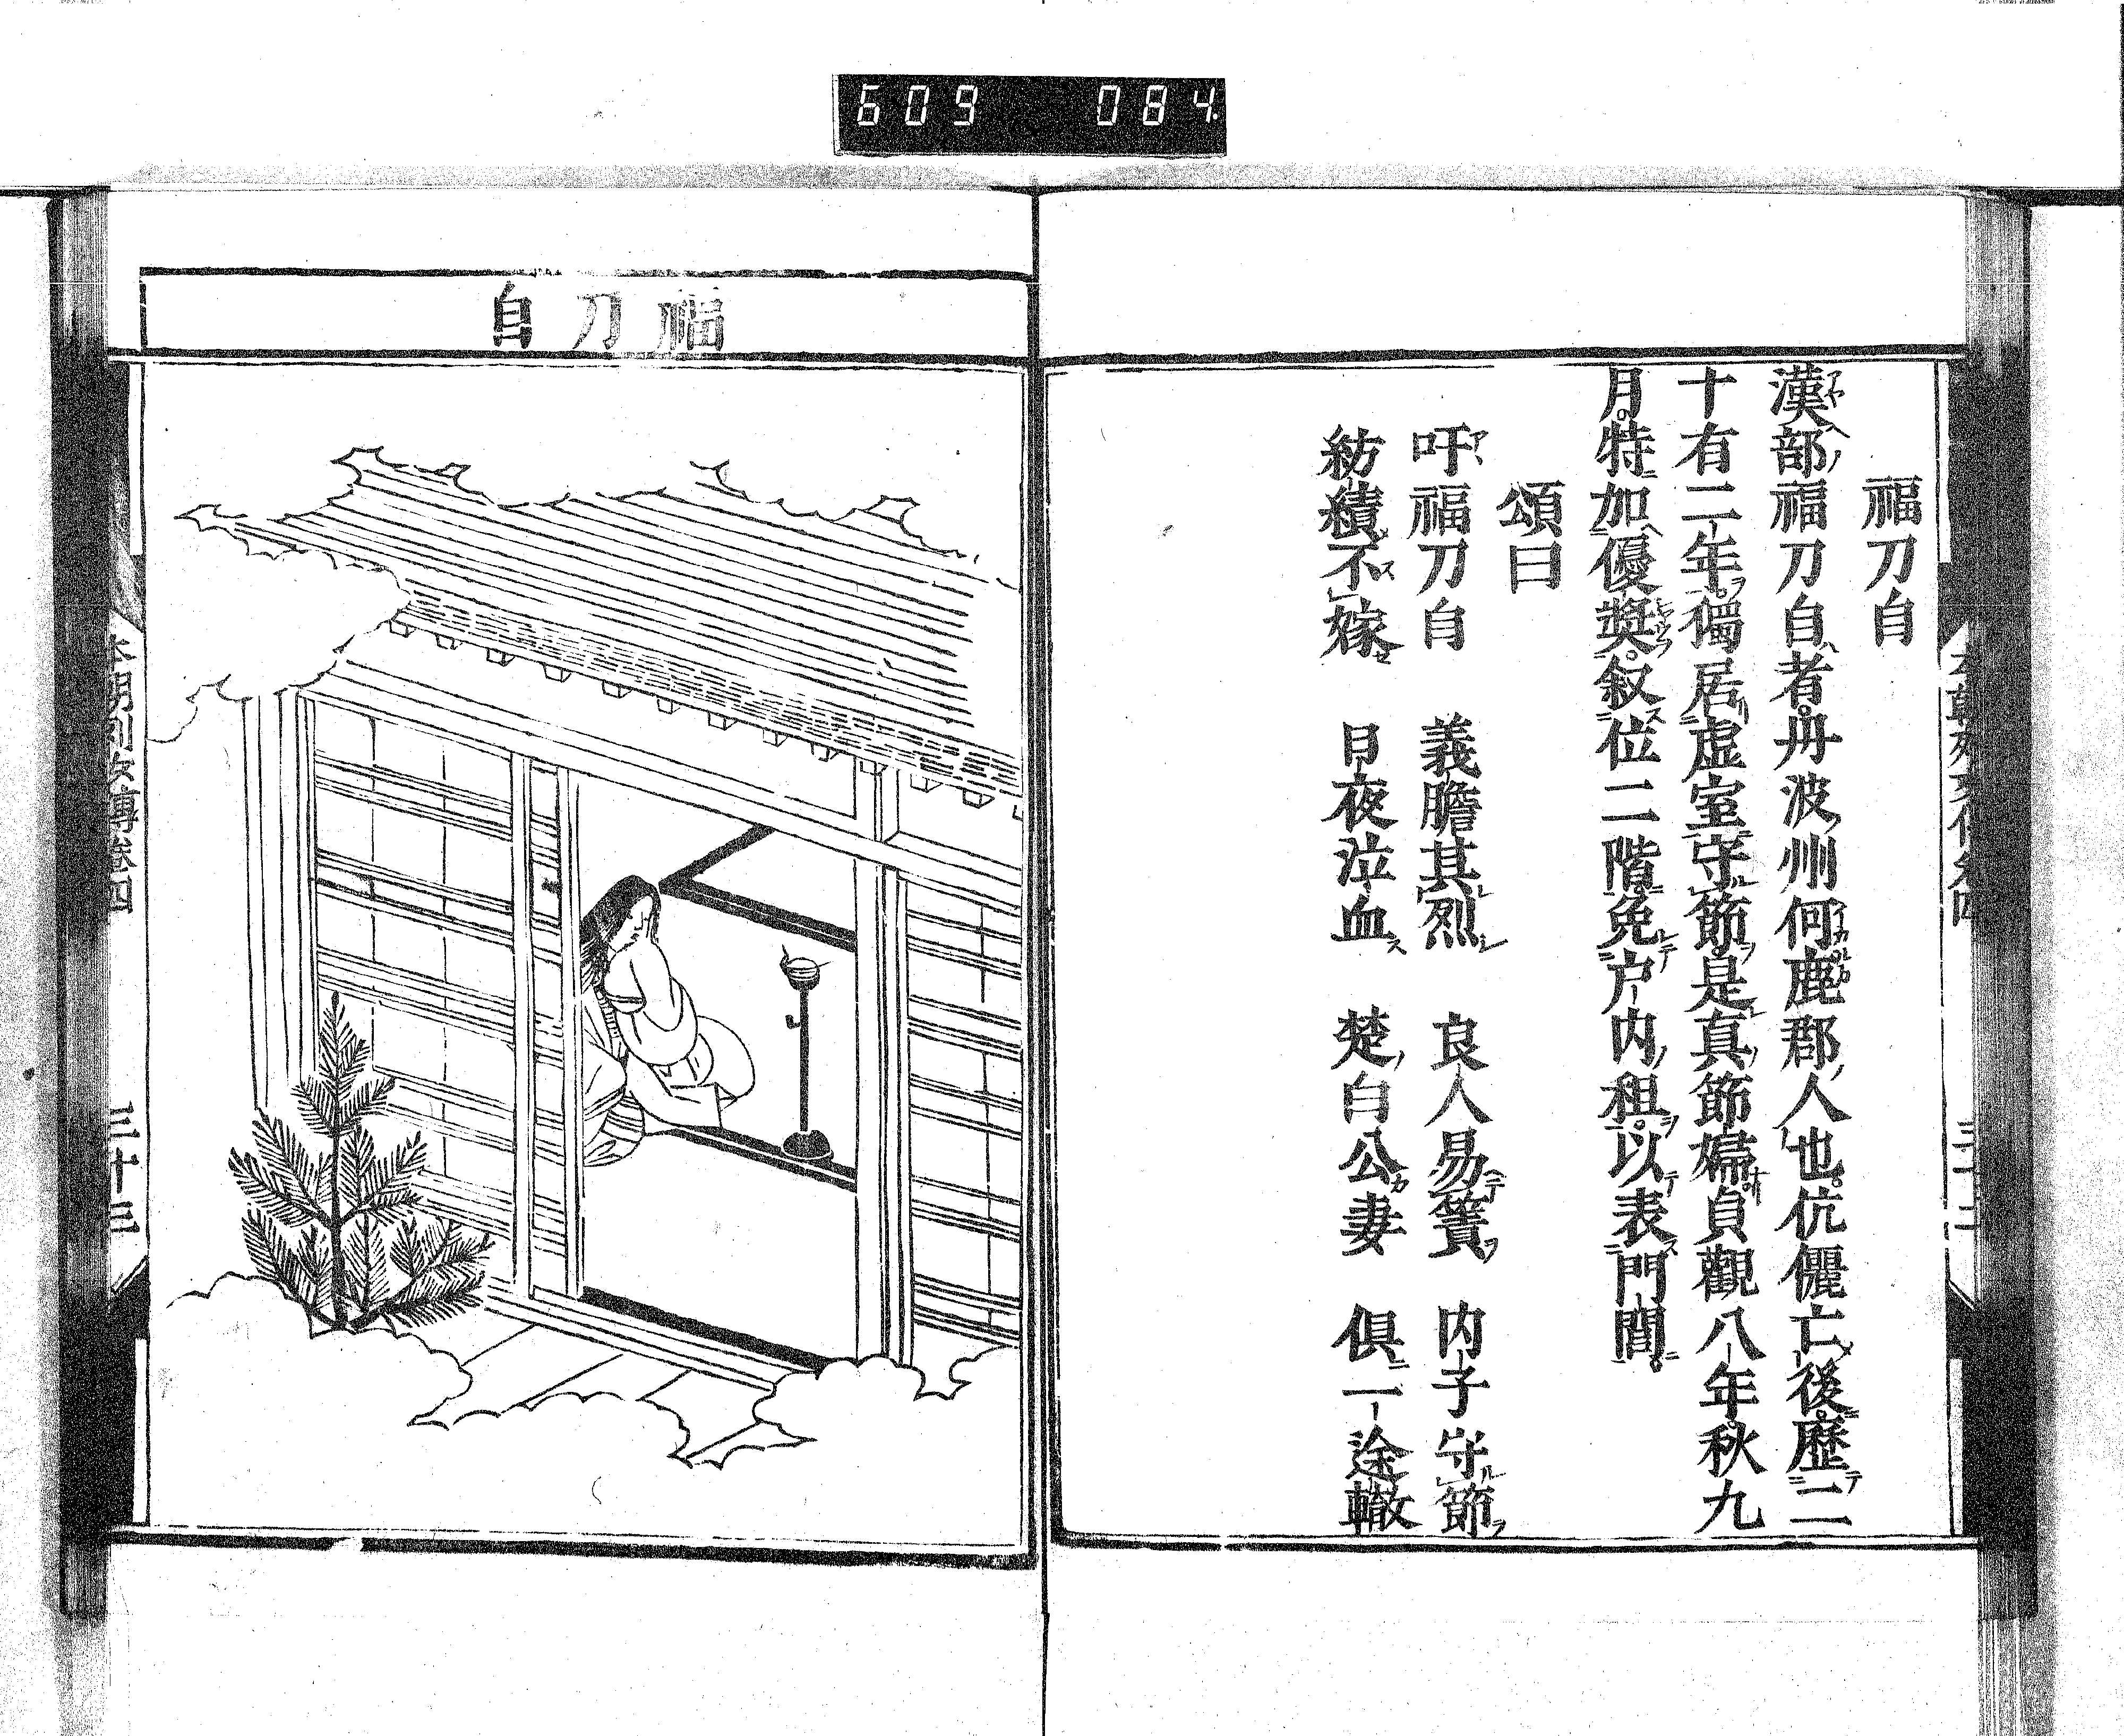 609 084
福刀自
漢部福刀自者丹波州何鹿郡人也伉儷亡後歴二
十有二年獨居虚室守節是真節婦貞觀八年秋九
月特加優奬叙位二階免户内租以表門閭
頌曰
吁福刀自 義膽其烈 良人易簀 内子守節
紡績不嫁 日夜泣血 楚白公妻 倶一途轍
福刀自
本朝列女傳卷四 三十三